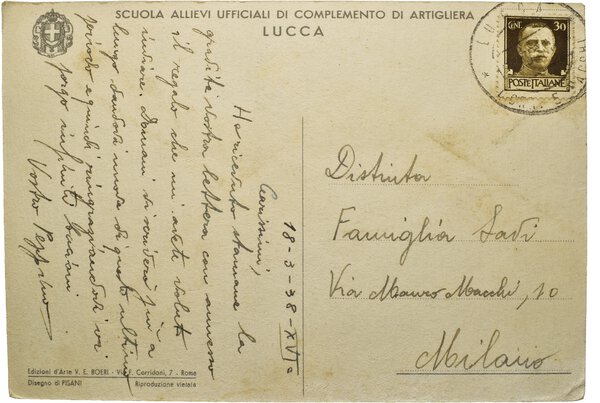 SCUOLA ALLIEVI UFFICIALI DI COMPLEMENTO DI ARTIGLIERA
LUCCA
CENT. 30
POSTE ITALIANE
LUCCA
18-3-38-XVI°
Carissimi,
Ho ricevuto stamane la
gradita vostra lettera con annesso
il regalo che mi avete voluto
inviare. Domani vi scriverò più a
lungo dandovi nuova di quest'ultimo
periodo e quindi ringraziandovi vi
porgo infiniti bacioni
Vostro Peppino
Distinta
Famiglia Sadi
Via Mauro Macchi, 10
Milano
Edizioni d'Arte V. E. BOERI - Via F. Corridoni, 7 - Roma
Disegno di PISANI Riproduzione vietata